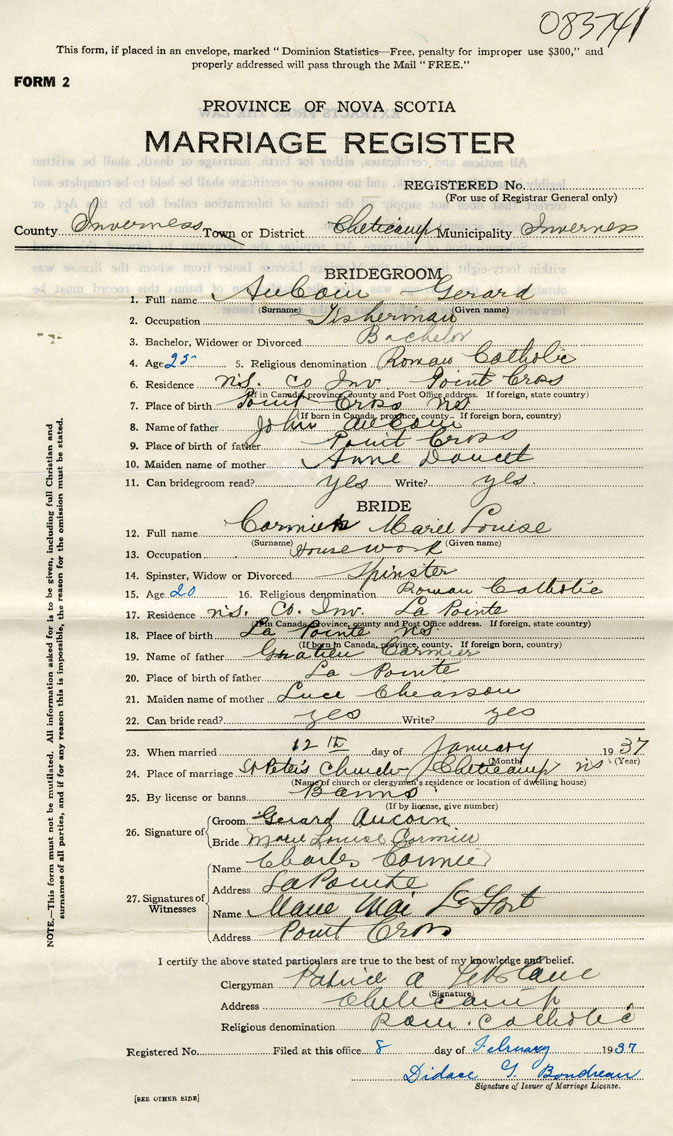 083741
This form, if placed in an envelope, marked "Dominion Statistics—Free, penalty for improper use $300," and
properly addressed will pass through the Mail "FREE."
FORM 2
PROVINCE OF NOVA SCOTIA
MARRIAGE REGISTER
REGISTERED No.
(For use of Registrar General only)
County Inverness Town or District Cheticamp Municipality Inverness
BRIDEGROOM
1. Full name AuCoin Gerard
(Surname) (Given name)
2. Occupation Fisherman
3. Bachelor, Widower or Divorced Bachelor
4. Age 25 5. Religious denomination Roman Catholic
6. Residence N.S. Co Inv. Point Cross
(If in Canada, province, county and Post Office address. If foreign, state country)
7. Place of birth Point Cross N.S.
(If born in Canada, province, county. If foreign born, country)
8. Name of father John AuCoin
9. Place of birth of father Point Cross
10. Maiden name of mother Anne Doucet
11. Can bridegroom read? yes Write? yes.
BRIDE
12. Full name Cormier Marie Louise
(Surname) (Given name)
13. Occupation Housework
14. Spinster, Widow or Divorced Spinster
15. Age 20 16. Religious denomination Roman Catholic
17. Residence N.S. Co. Inv. La Pointe
(If in Canada, province, county and Post Office address. If foreign, state country)
18. Place of birth La Pointe N.S.
(If born in Canada, province, county. If foreign born, country)
19. Name of father Cormier
20. Place of birth of father La Pointe
21. Maiden name of mother Luce Chiasson
22. Can bride read? yes Write? yes
23. When married 12th day of January 1937
(Month) (Year)
24. Place of marriage St Peter's Church Cheticamp N.S.
(Name of church or clergyman's residence or location of dwelling house)
25. By license or banns Banns
(If by license, give number)
26. Signature of
Groom Gerard Aucoin
Bride Marie Louise Cormier
27. Signatures of Witnesses
Name Charles Cormier
Address La Pointe
Name Marie Mai LeFort
Address Point Cross
I certify the above stated particulars are true to the best of my knowledge and belief.
Clergyman Patrice A LeBlanc
(Signature)
Address Cheticamp
Religious denomination Rom. Catholic
Registered No. Filed at this office 8 day of February 1937
Didace G. Boudreau
Signature of Issuer of Marriage License.
[SEE OTHER SIDE]
NOTE.—This form must not be mutilated. All information asked for is to be given, including full Christian and
surnames of all parties, and if for any reason this is impossible, the reason for the omission must be stated.